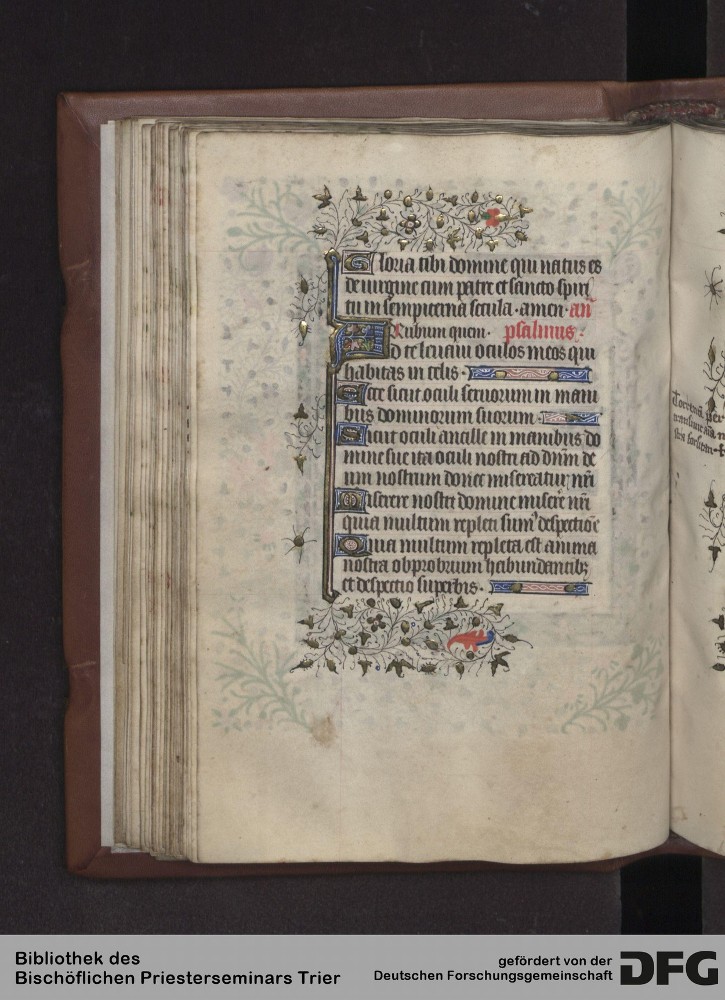 Gloria tibi domine qui natus es
de uirgine cum patre et sancto spiri
tu in sempiterna secula · amen · an̄
Rubum quem · psalmus ·
Ad te leuaui oculos meos qui
habitas in celis ·
Ecce sicut oculi seruorum in mani
bus dominorum suorum ·
Sicut oculi ancille in manibus do
mine sue ita oculi nostri ad dn̄m de
um nostrum donec misereatur nr̄i
Miserere nostri domine misere nr̄i
quia multum repleti sumꝰ despectiōe
Quia multum repleta est anima
nostra obprobrium habundantibꝫ
et despectio superbis ·
Bibliothek des
Bischöflichen Priesterseminars Trier
gefördert von der
Deutschen Forschungsgemeinschaft
DFG